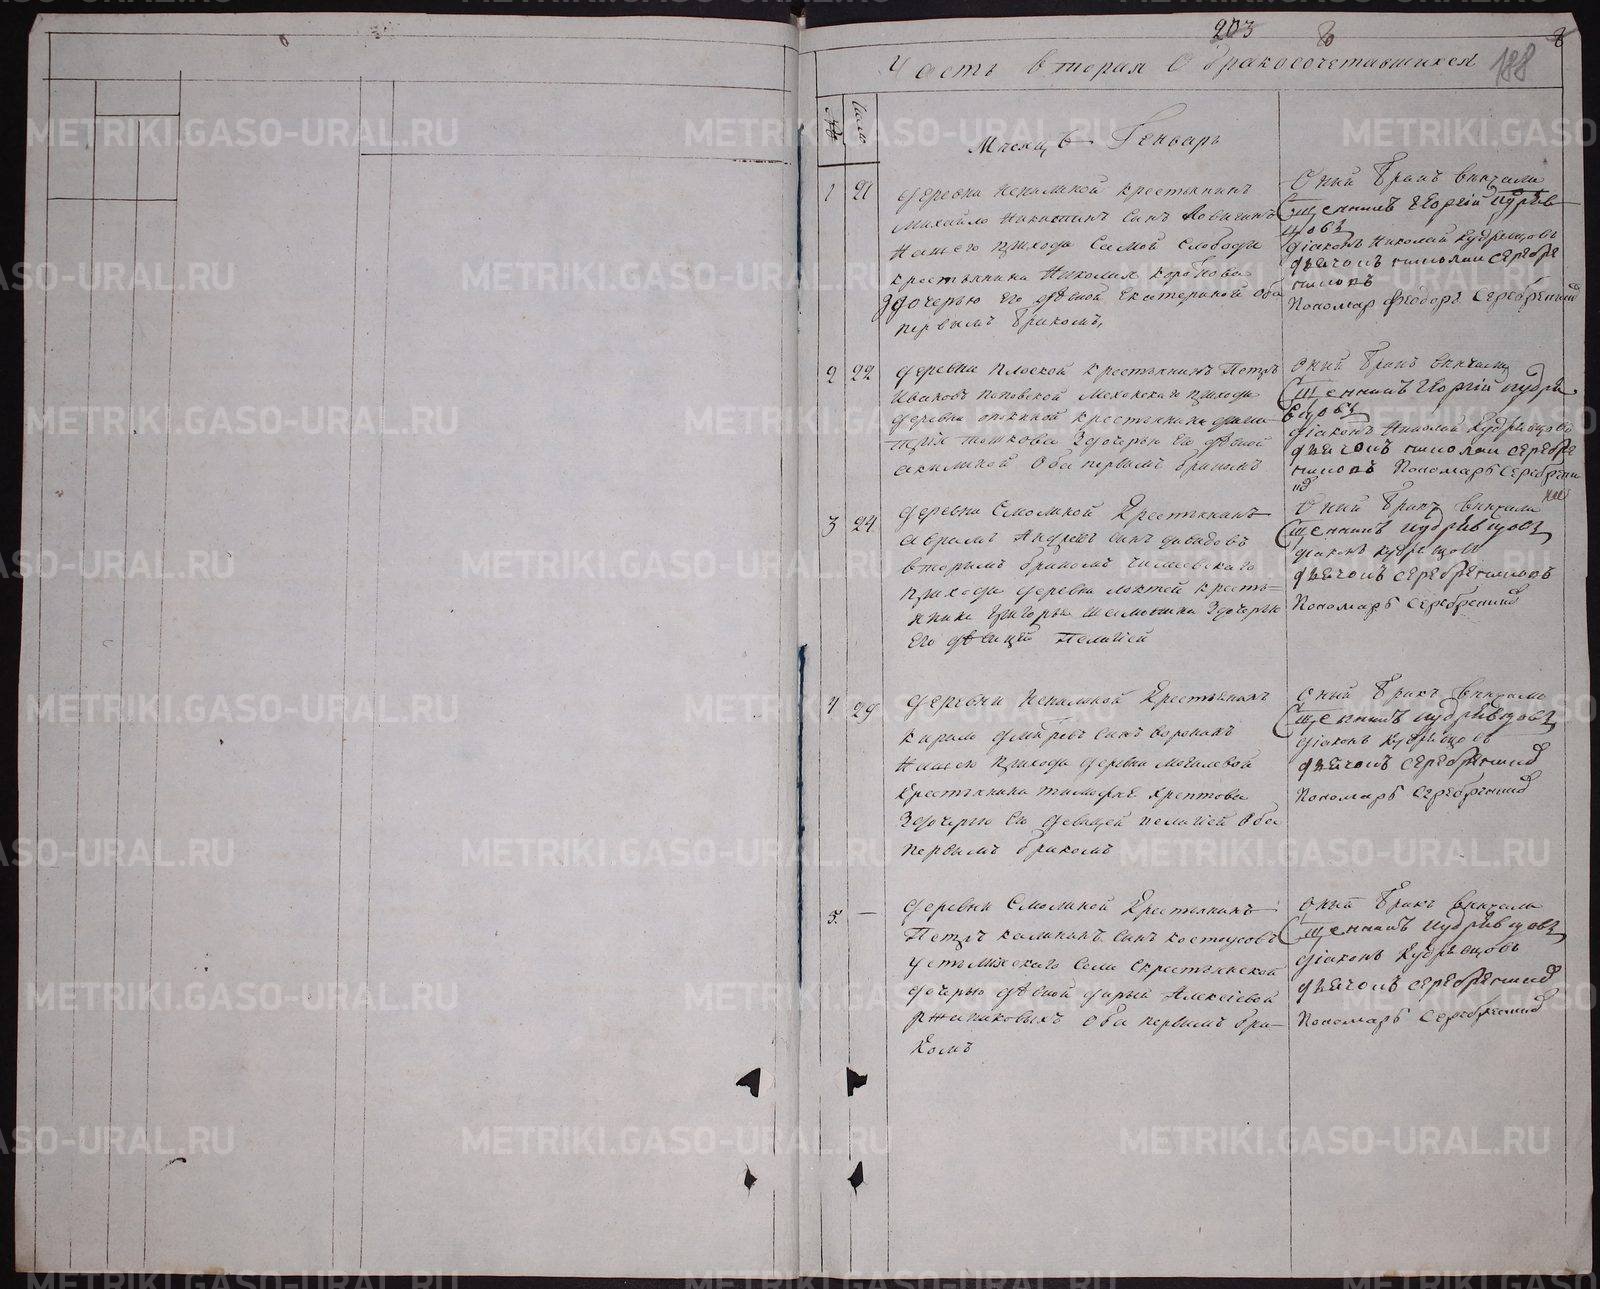 203 8 8
Часть вторая О бракосочетавшихся 188
№ Число
Мѣсяцъ Генварь
1 21 деревни Непалиной крестьянинъ
Михайло Никитинъ Сынъ
Нашего прихода Самой Слободы
крестьянина Николая Коробкова
Здочерью Его дѣвкой Екатериной Оба
первымъ бракомъ,
Оный бракъ Венчали
Священникъ Георгій Кудрѣв
цовъ
діаконъ Николай Кудрявцовъ
дьячокъ Николай Серебре
никовъ
Пономарь Феодоръ Серебрениковъ
2 22 деревни Плоской крестьянинъ Петръ
Ивановъ Поповской Мехонскаго прихода
деревни крестьянина Дми
трія Здочерью Ево дѣвкой
Акилиной Оба первымъ бракомъ
Оный бракъ венчали
Священникъ Георгій Кудря
вцовъ
діаконъ Николай Кудрявцовъ
дьячокъ Николай Серебре
никовъ Пономарь Серебрени
ковъ
3 24 деревни Смолиной Крестьянинъ
Аврамъ Андреевъ Сынъ Давыдовъ
вторымъ бракомъ
прихода деревни крестья
нина Григорья Здочерью
Его дѣвицей Пелагией
Оный бракъ Венчали
Священникъ Кудрявцовъ
діаконъ Кудрявцовъ
дьячокъ Серебрениковъ
Пономарь Серебрениковъ
4 29 деревни Непалиной Крестьянинъ
Кирило Дмитревъ Сынъ Воронинъ
Нашего прихода деревни Могилевой
Крестьянина Тимофея
Здочерью Ево девицей Пелагией Оба
первымъ бракомъ
Оный бракъ Венчали
Священникъ Кудрявцовъ
діаконъ Кудрявцовъ
дьячокъ Серебрениковъ
Пономарь Серебрениковъ
5. — деревни Смолиной Крестьянинъ
Петръ Калининъ Сынъ Костоусовъ
Усть Міяскаго Села Скрестьянской
дочерью дѣвкой Дарьей Алексіевой
Ржанниковыхъ Оба первымъ бра-
комъ
Оный бракъ Венчали
Священникъ Кудрявцовъ
діаконъ Кудрявцовъ
дьячокъ Серебрениковъ
Пономарь Серебрениковъ
METRIKI.GASO-URAL.RU